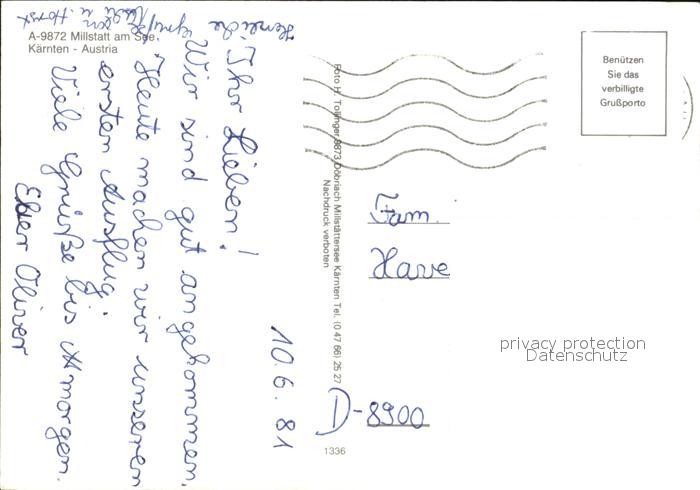 A-9872 Millstatt am See,
Kärnten - Austria
10.6.81
Ihr Lieben!
Wir sind gut angekommen.
Heute machen wir unseren
ersten Ausflug.
Viele Grüße bis morgen.
Euer Oliver
Herzliche Grüße
von
u. Horst
Foto H. Tollinger, 9873 Döbriach Millstättersee Kärnten Tel. (0 47 66) 25 27
Nachdruck verboten
1336
Benützen
Sie das
verbilligte
Grußporto
Fam.
Have
D-8900
privacy protection
Datenschutz